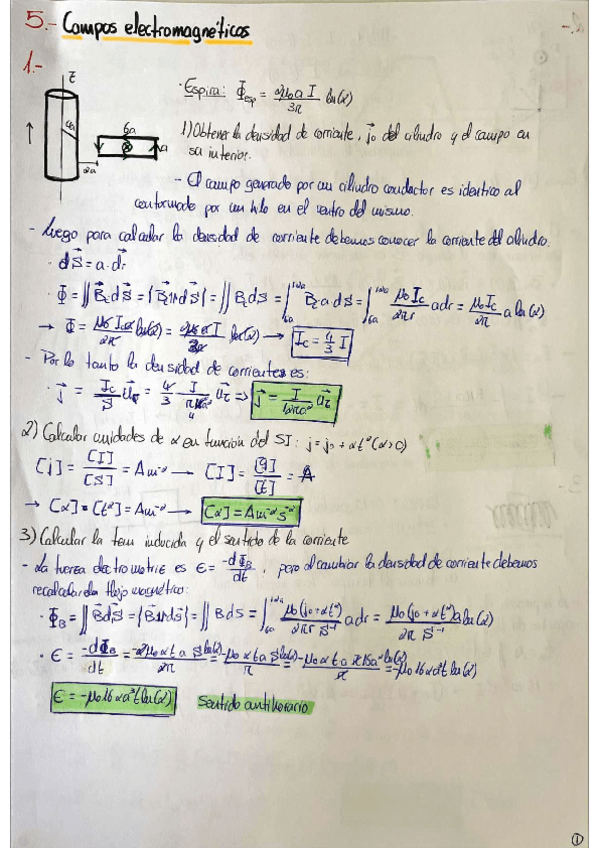 5.- Campos electromagnéticos
1.-
z
4a
6a
a
2a
· Espira: Φesp = 2μ0 a I / 3π ln(2)
1) Obtener la densidad de corriente, j0 del cilindro y el campo en
su interior.
- El campo generado por un cilindro conductor es identico al
conformado por un hilo en el centro del mismo.
- Luego para calcular la densidad de corriente debemos conocer la corriente del cilindro.
· dS = a·dr
· Φ = ∬ Bc dS = {B∥dS} = ∬ Bc dS = ∫6a^12a Bc a dr = ∫6a^12a μ0 Ic / 2πr a dr = μ0 Ic / 2π a ln(2)
→ Φ = μ0 Ic a / 2π ln(2) = 2μ0 a I / 3π ln(2) → Ic = 4/3 I
- Por lo tanto la densidad de corriente es:
2) Calcular unidades de α en función del SI: j = j0 + αt² (α>0)
[j] = [I] / [S] = Am⁻² → [I] = [q] / [t] = A
→ [α]·[t²] = Am⁻² → [α] = Am⁻² s⁻²
3) Calcular la fem inducida y el sentido de la corriente
- La fuerza electromotriz es ε = -dΦB / dt, pero al cambiar la densidad de corriente debemos
recalcular el flujo magnético:
· ΦB = ∬ B dS = {B∥dS} = ∬ B dS = ∫6a^12a μ0 (j0 + αt²) / 2πr S⁻¹ a dr = μ0 (j0 + αt²) a ln(2) / 2π S⁻¹
ε = -μ0 16 α a³ t ln(2)
Sentido antihorario
1